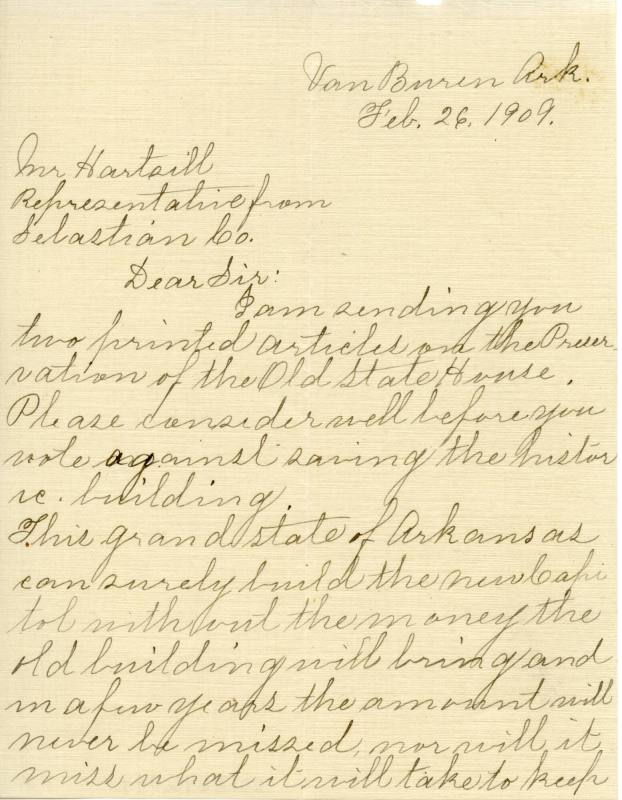 Van Buren Ark.
Feb. 26, 1909.
Mr Hartsill
Representative from
Sebastian Co.
Dear Sir:
I am sending you
two printed articles on the Preser-
vation of the Old State House.
Please consider well before you
vote against saving the histor
ic. building.
This grand state of Arkansas
can surely build the new Capi
tol without the money the
old building will bring and
in a few years the amount will
never be missed, nor will it
miss what it will take to keep